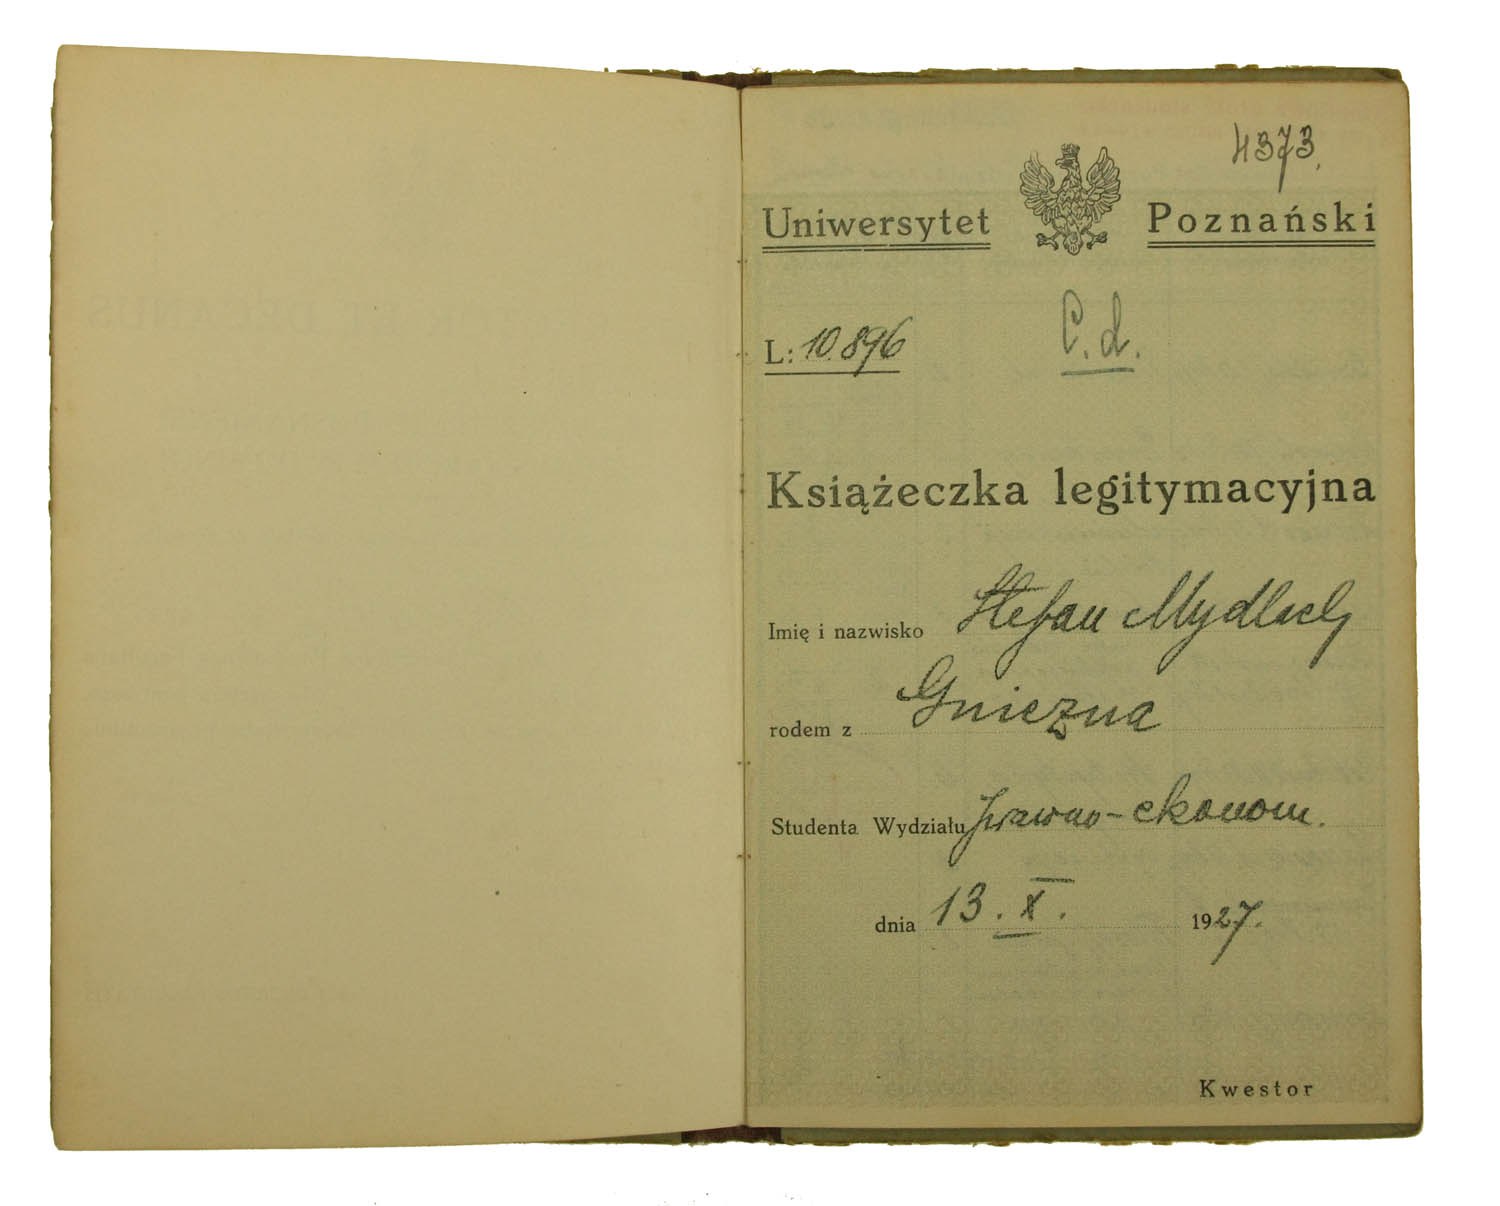 4373.
Uniwersytet Poznański
L: 10.896
C. d.
Książeczka legitymacyjna
Imię i nazwisko Stefan Mydlach
rodem z Gniezna
Studenta Wydziału prawno-ekonom.
dnia 13. X. 1927.
Kwestor